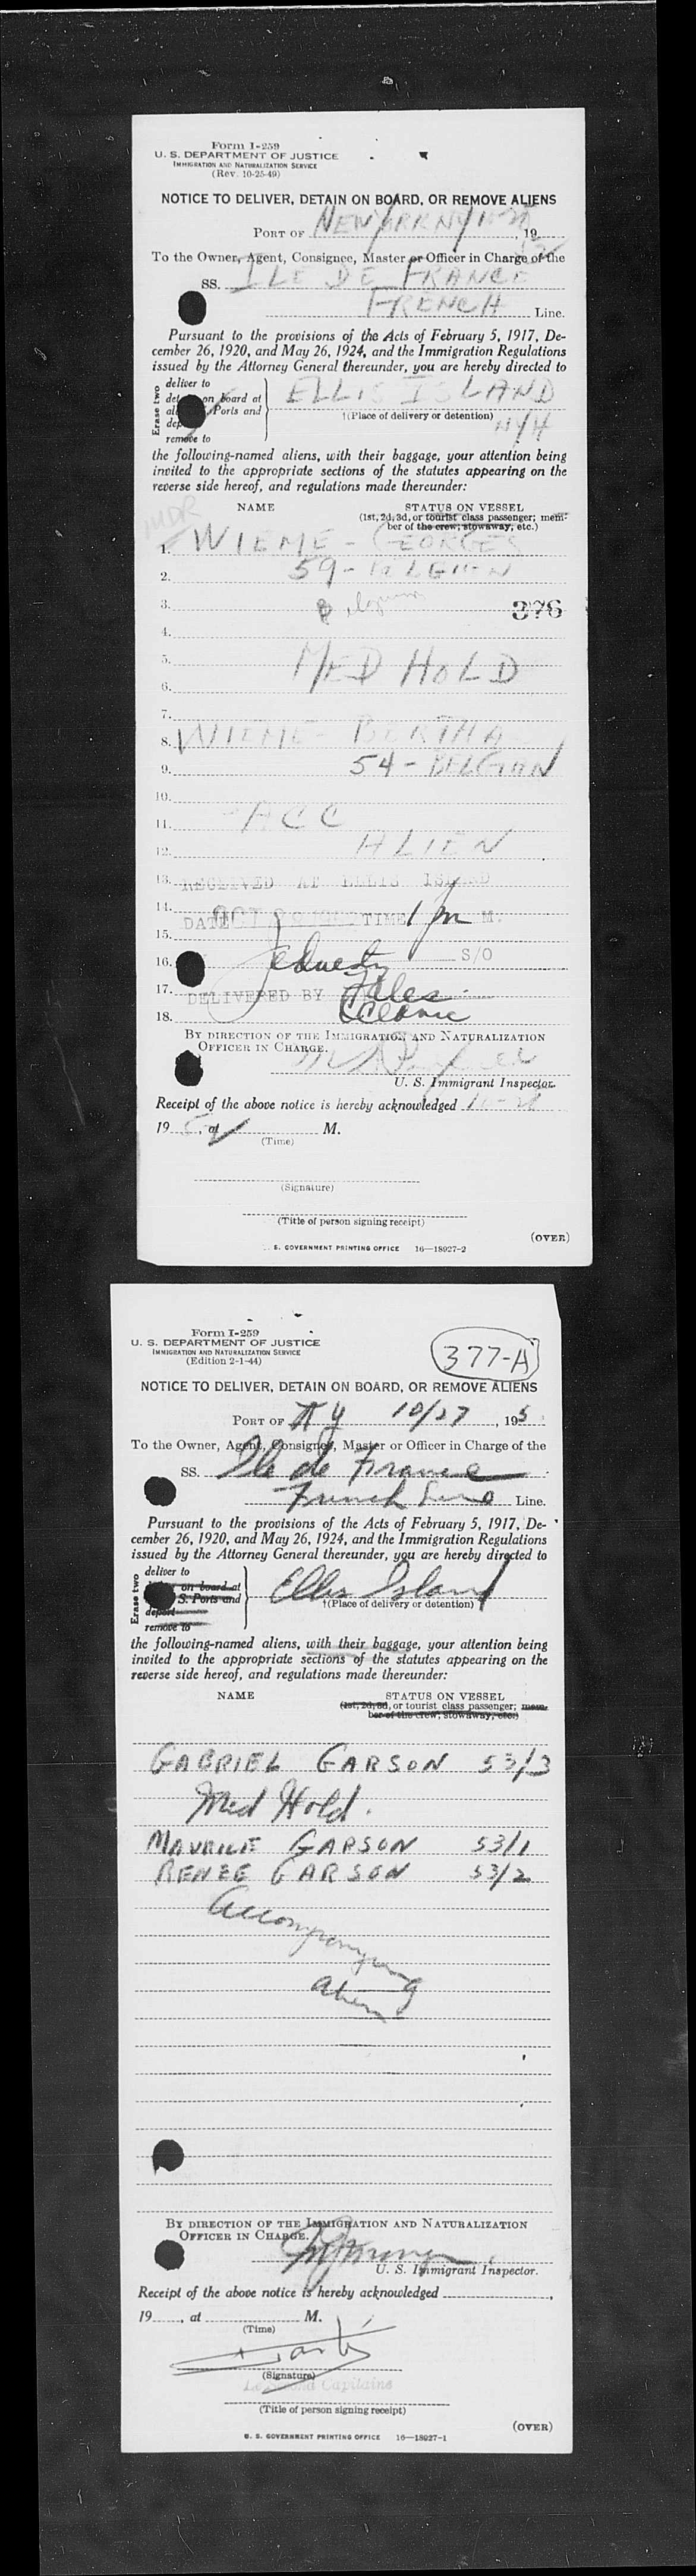 Form I-259
U. S. DEPARTMENT OF JUSTICE
IMMIGRATION AND NATURALIZATION SERVICE
(Rev. 10-25-49)
NOTICE TO DELIVER, DETAIN ON BOARD, OR REMOVE ALIENS
PORT OF NEW YORK NY , 19
To the Owner, Agent, Consignee, Master or Officer in Charge of the
SS. ILE DE FRANCE
FRENCH Line.
Pursuant to the provisions of the Acts of February 5, 1917, De-
cember 26, 1920, and May 26, 1924, and the Immigration Regulations
issued by the Attorney General thereunder, you are hereby directed to
Erase two
deliver to
on board at
Ports and
remove to
ELLIS ISLAND
†(Place of delivery or detention)
NYH
the following-named aliens, with their baggage, your attention being
invited to the appropriate sections of the statutes appearing on the
reverse side hereof, and regulations made thereunder:
NAME STATUS ON VESSEL
(1st, 2d, 3d, or tourist class passenger; mem-
ber of the crew; stowaway, etc.)
1. WIEME - GEORGES
2. 59 - BELGIAN
3. 376
4.
5. MED HOLD
6.
7.
8. WIEME - BERTHA
9. 54 - BELGIAN
10.
11. ACC
12. ALIEN
13. RECEIVED AT ELLIS ISLAND
14. DATE OCT TIME 1 PM M.
15.
16. S/O
17. DELIVERED BY
18.
BY DIRECTION OF THE IMMIGRATION AND NATURALIZATION
OFFICER IN CHARGE.
U. S. Immigrant Inspector.
Receipt of the above notice is hereby acknowledged
19 , at M.
(Time)
(Signature)
(Title of person signing receipt)
(OVER)
S. GOVERNMENT PRINTING OFFICE 16—18927-2
Form I-259
U. S. DEPARTMENT OF JUSTICE
IMMIGRATION AND NATURALIZATION SERVICE
(Edition 2-1-44)
377-A
NOTICE TO DELIVER, DETAIN ON BOARD, OR REMOVE ALIENS
PORT OF N Y 10/27 , 195
To the Owner, Agent, Consignee, Master or Officer in Charge of the
SS. Ile de France
French Line Line.
Pursuant to the provisions of the Acts of February 5, 1917, De-
cember 26, 1920, and May 26, 1924, and the Immigration Regulations
issued by the Attorney General thereunder, you are hereby directed to
Erase two
deliver to
on board at
S. Ports and
deport
remove to
Ellis Island
†(Place of delivery or detention)
the following-named aliens, with their baggage, your attention being
invited to the appropriate sections of the statutes appearing on the
reverse side hereof, and regulations made thereunder:
NAME STATUS ON VESSEL
(1st, 2d, 3d, or tourist class passenger; mem-
ber of the crew; stowaway, etc.)
GABRIEL GARSON 53/3
Med Hold.
MAURICE GARSON 53/1
RENEE GARSON 53/2
Accompanying
alien
BY DIRECTION OF THE IMMIGRATION AND NATURALIZATION
OFFICER IN CHARGE.
U. S. Immigrant Inspector.
Receipt of the above notice is hereby acknowledged
19 , at M.
(Time)
(Signature)
Capitaine
(Title of person signing receipt)
(OVER)
U. S. GOVERNMENT PRINTING OFFICE 16—18927-1